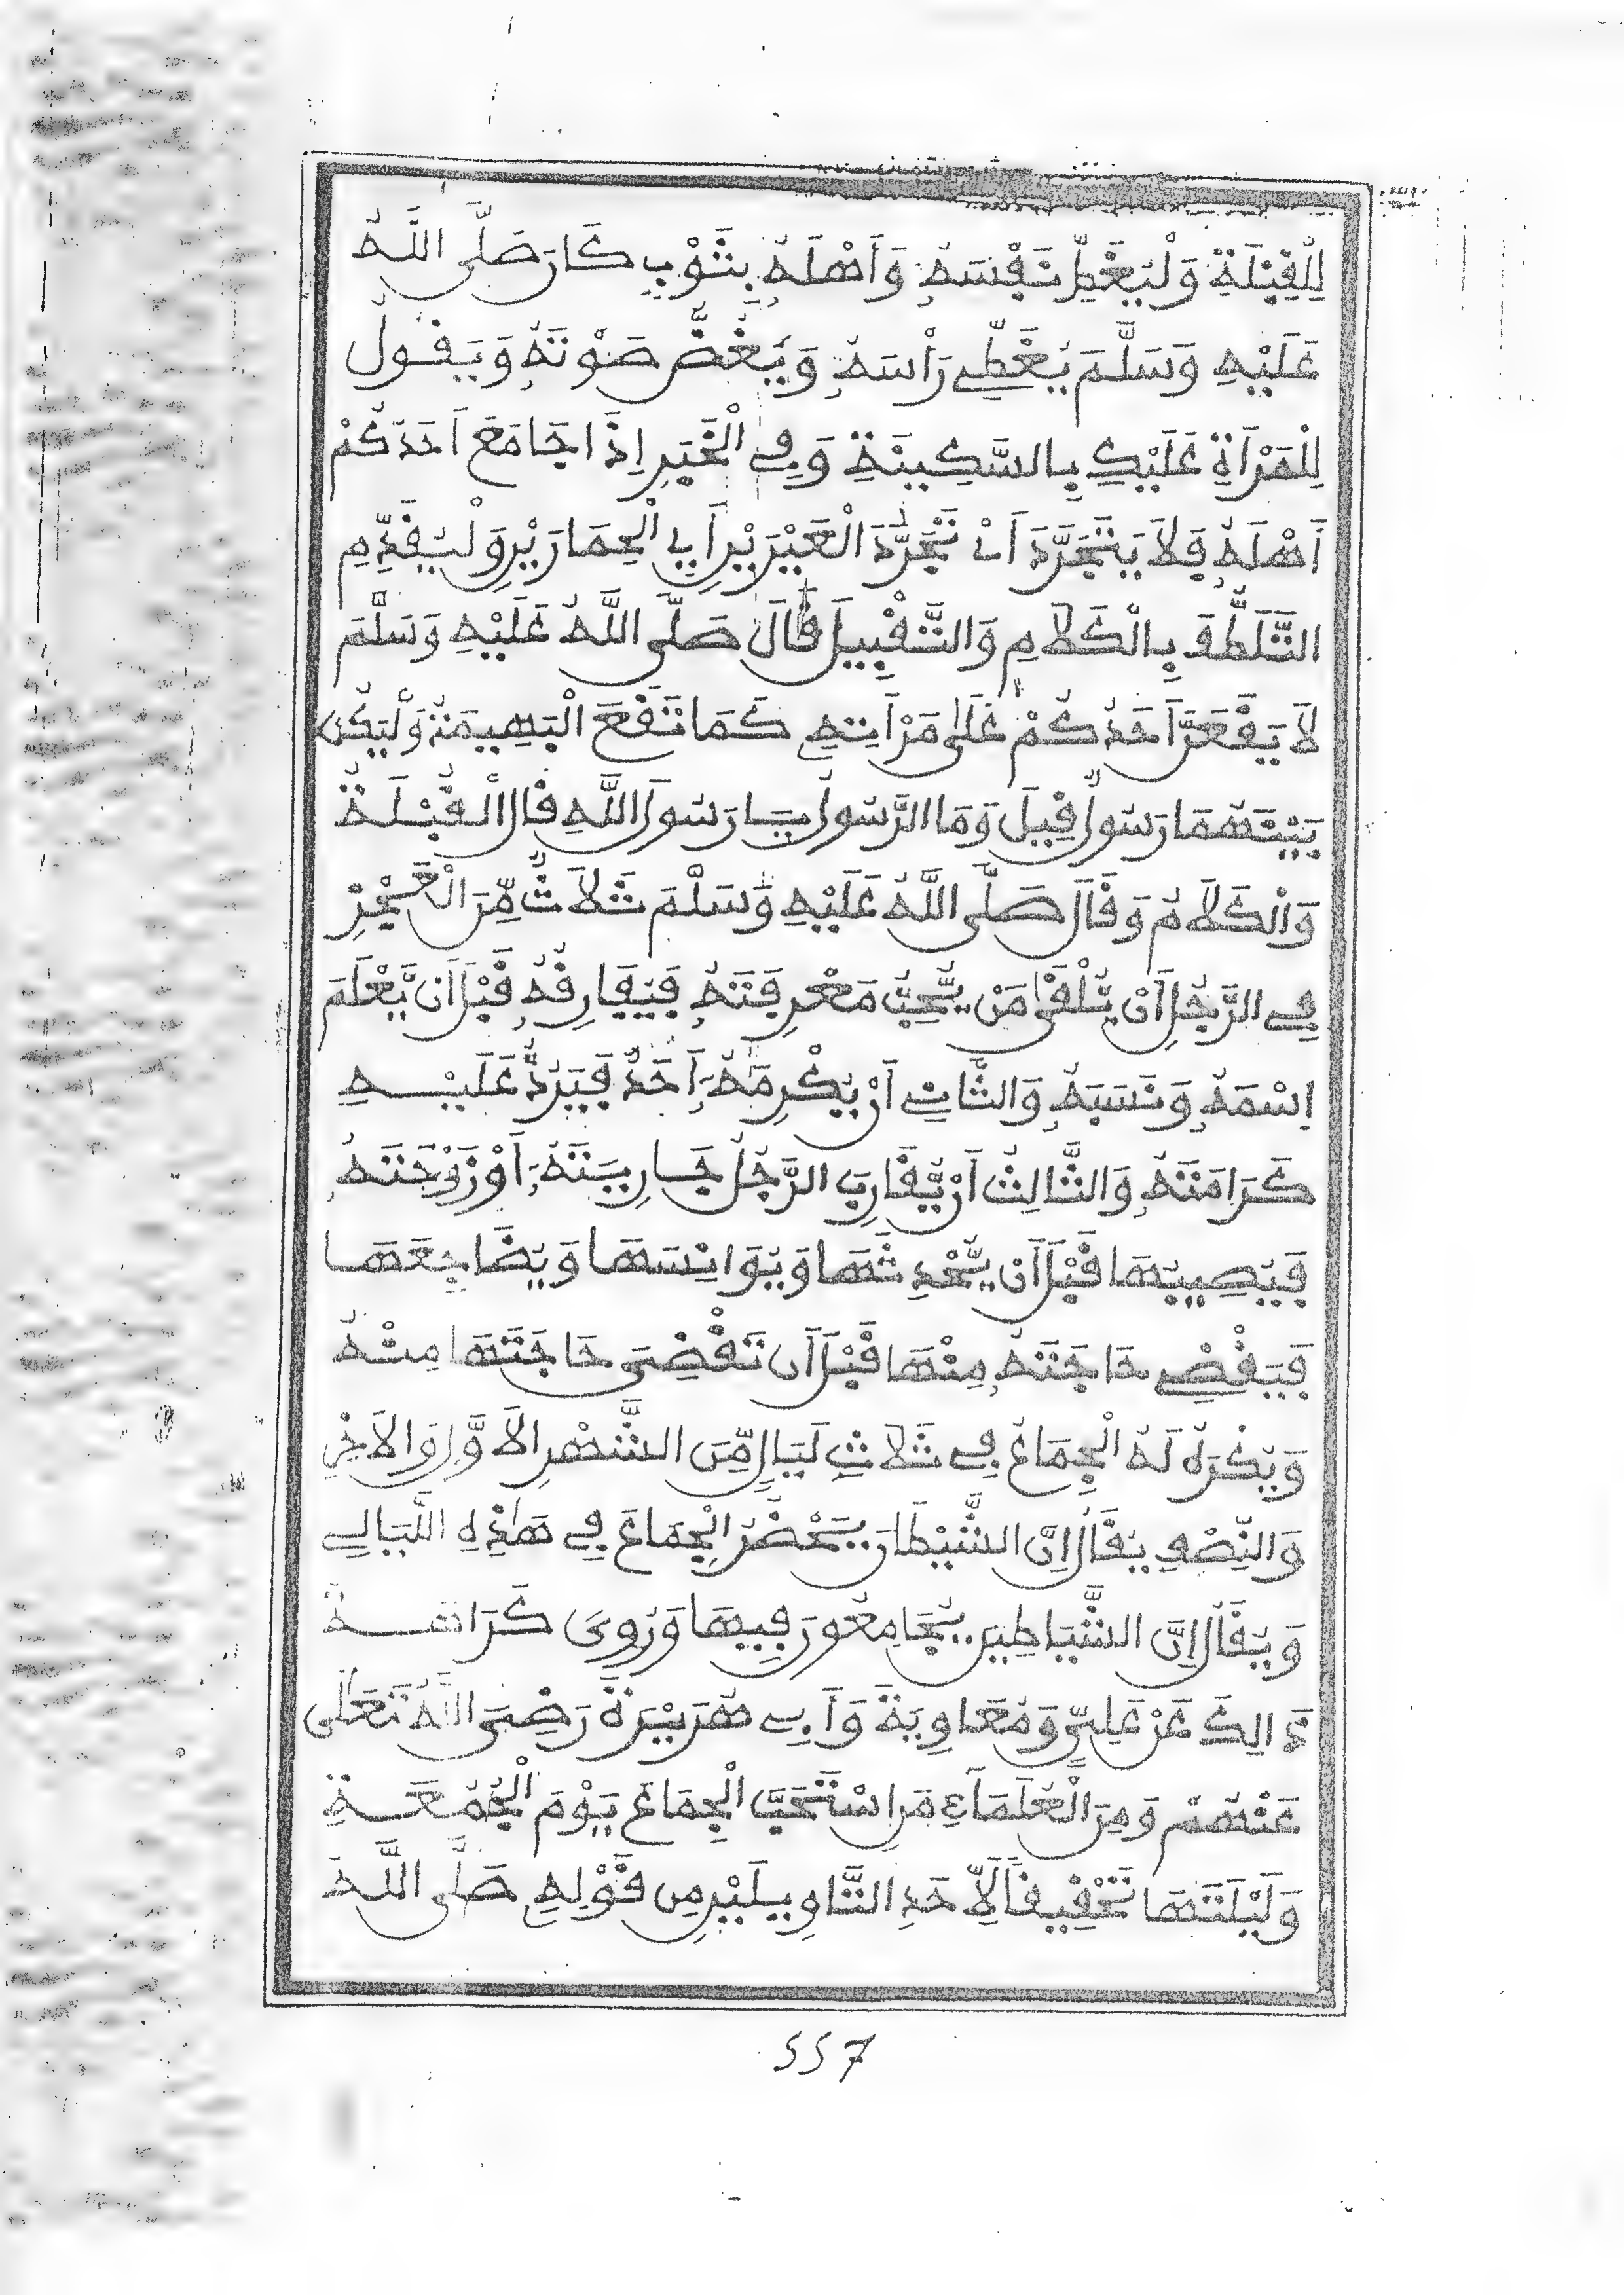 لِلْقِبْلَةِ وَلْيُغَطِّ نَفْسَهُ وَأَهْلَهُ بِثَوْبٍ كَانَ صَلَّى اللَّهُ
عَلَيْهِ وَسَلَّمَ يُغَطِّي رَأْسَهُ وَيَغُضُّ صَوْتَهُ وَيَقُولُ
لِلْمَرْأَةِ عَلَيْكِ بِالسَّكِينَةِ وَفِي الْخَبَرِ إِذَا جَامَعَ أَحَدُكُمْ
أَهْلَهُ فَلَا يَتَجَرَّدَانْ تَجَرُّدَ الْعَيْرَيْنِ أَيِ الْحِمَارَيْنِ وَلْيُقَدِّمِ
التَّلَطُّفَ بِالْكَلَامِ وَالتَّقْبِيلَ قَالَ صَلَّى اللَّهُ عَلَيْهِ وَسَلَّمَ
لَا يَقَعَنَّ أَحَدُكُمْ عَلَى مَرْأَتِهِ كَمَا تَقَعُ الْبَهِيمَةُ وَلْيَكُن
بَيْنَهُمَا رَسُولٌ قِيلَ وَمَا الرَّسُولُ يَا رَسُولَ اللَّهِ قَالَ الْقُبْلَةُ
وَالْكَلَامُ وَقَالَ صَلَّى اللَّهُ عَلَيْهِ وَسَلَّمَ ثَلَاثٌ مِّنَ الْعَجْزِ
فِي الرَّجُلِ أَنْ يَّلْقَى مَنْ يُّحِبُّ مَعْرِفَتَهُ فَيُفَارِقُهُ قَبْلَ أَن يَّعْلَمَ
اِسْمَهُ وَنَسَبَهُ وَالثَّانِي أَنْ يُّكْرِمَهُ أَحَدٌ فَيَرُدُّ عَلَيْهِ
كَرَامَتَهُ وَالثَّالِثُ أَنْ يُّقَارِبَ الرَّجُلُ جَارِيَتَهُ أَوْ زَوْجَتَهُ
فَيُصِيبُهَا قَبْلَ أَن يُّحْدِثَهَا وَيُوَانِسَهَا وَيُضَاجِعَهَا
فَيَقْضِي حَاجَتَهُ مِنْهَا قَبْلَ أَن تَقْضِيَ حَاجَتَهَا مِنْهُ
وَيُكْرَهُ لَهُ الْجِمَاعُ فِي ثَلَاثِ لَيَالٍ مِّنَ الشَّهْرِ الْأَوَّلِ وَالْآخِرِ
وَالنِّصْفِ يُقَالُ إِنَّ الشَّيْطَانَ يَحْضُرُ الْجِمَاعَ فِي هَذِهِ اللَّيَالِي
وَيُقَالُ إِنَّ الشَّيَاطِينَ يُجَامِعُونَ فِيهَا وَرُوِيَ كَرَاهَةُ
ذَالِكَ عَنْ عَلِيٍّ وَمُعَاوِيَةَ وَأَبِي هُرَيْرَةَ رَضِيَ اللَّهُ تَعَلَى
عَنْهُمْ وَمِنَ الْعُلَمَاءِ مَنِ اسْتَحَبَّ الْجِمَاعَ يَوْمَ الْجُمُعَةِ
وَلَيْلَتَهَا تَحْقِيقًا لِأَحَدِ التَّاوِيلَيْنِ مِن قَوْلِهِ صَلَّى اللَّهُ
557